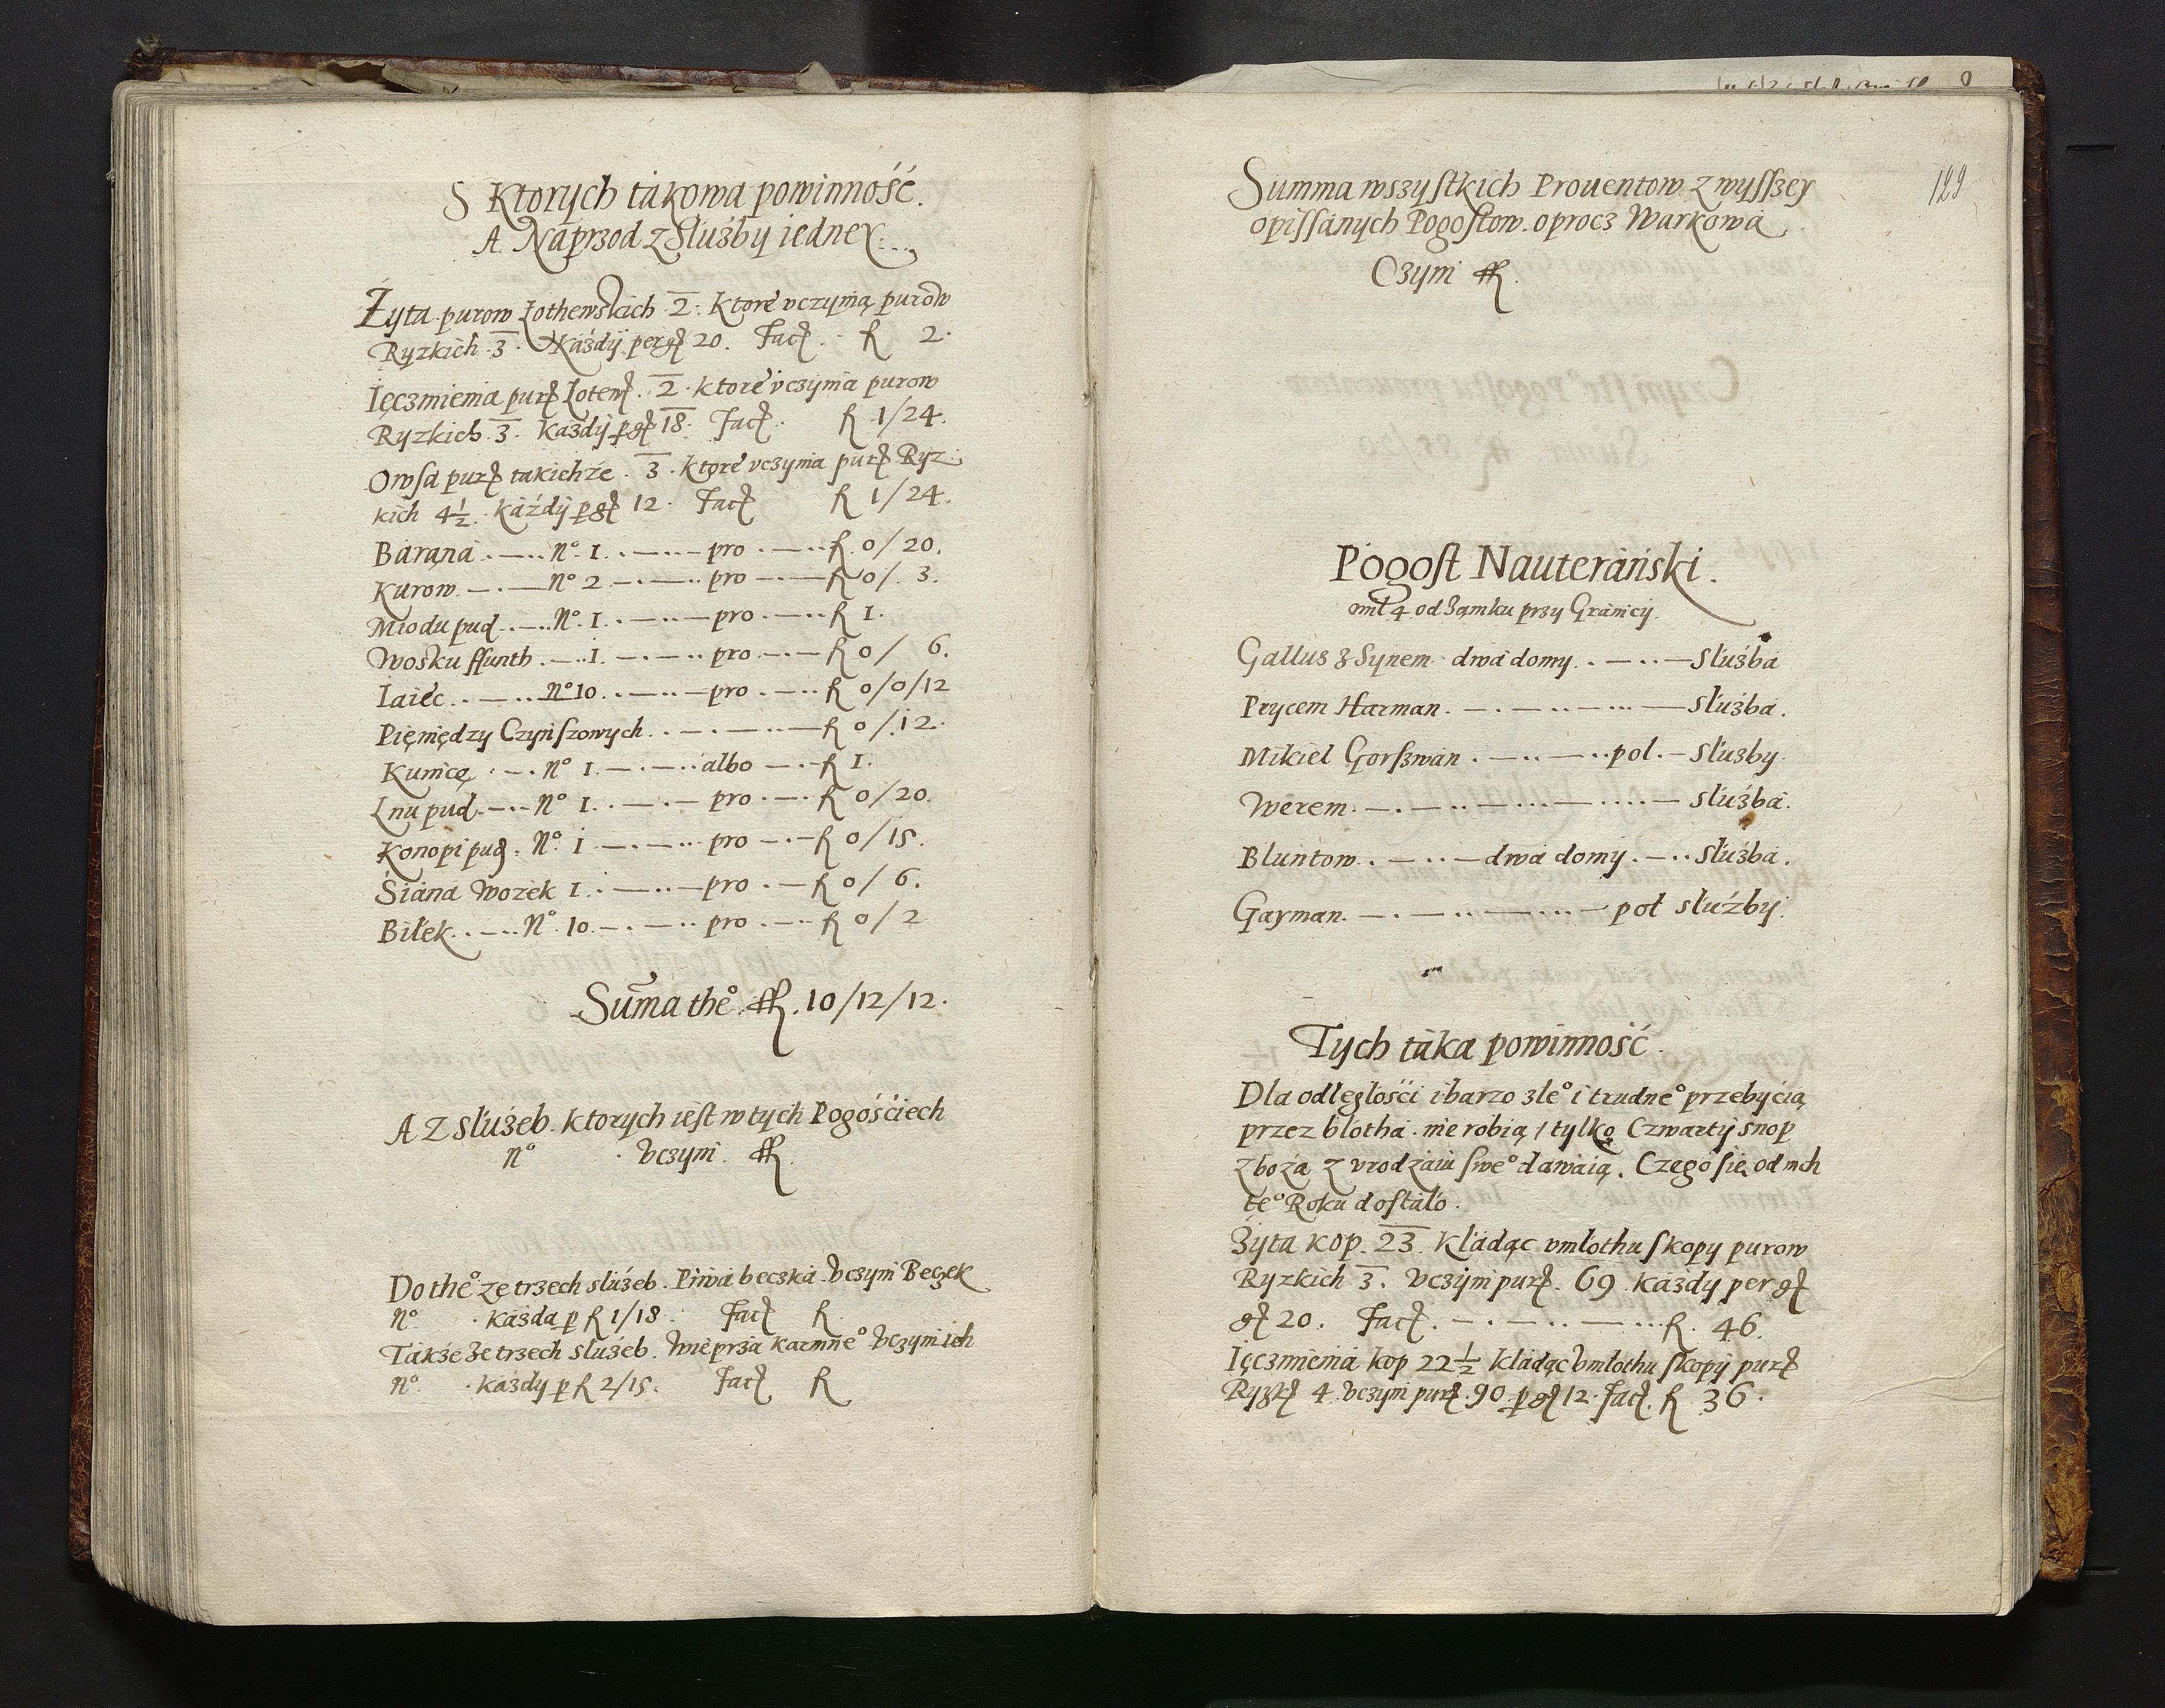 S Ktorych takowa powinność.
A Naprzod z Służby iedney
Żyta purow Łothewskich 2. Ktore vczynią purow
Ryzkich 3. Każdy per gł 20. Facł. fl 2.
Ięczmienia purł Łotewł. 2. ktore vczynia purow
Ryzkich 3. każdy p gł 18. Facł. fl 1/24.
Owsa purł takichże. 3. ktore vczynia purł Ryz
kich 4½. każdy p gł 12. Facł fl 1/24.
Barana No. 1. pro fl. 0/20.
Kurow No 2 pro fl 0/. 3.
Miodu pud No. 1. pro fl 1.
Wosku ffunth 1. pro fl 0/ 6.
Iaiec No 10. pro fl 0/0/12
Pieniędzy Czynszowych fl 0/.12.
Kunicę No 1. albo fl 1.
Lnu pud No 1. pro fl 0/20.
Konopi pud. No. 1 pro fl 0/15.
Siana Wozek 1. pro fl 0/ 6.
Biłek No. 10. pro fl 0/2
Suma theo ffl. 10/12/12.
A z służeb. ktorych iest w tych Pogościech
No . vczyni ffl
Do theo ze trzech służeb. Piwa beczka. vczyni Beczek
No . każda p fl 1/18. Facł fl
Także ze trzech służeb. Wieprza karmneo vczyni ich
No. . każdy p fl 2/15. Facł fl
129
Summa wszystkich Prouentow z wyszszey
opissanych Pogostow. oprocz Warkowa
Czyni ffl.
Pogost Nauterański.
mil 4 od Zamku przy Granicy.
Gallus z Synem dwa domy. służba
Prycem Harman. służba.
Mikiel Gorszwan. pol. służby.
Werem. służba.
Bluntow. dwa domy. służba.
Gayman. poł służby.
Tych taka powinność.
Dla odległości i barzo złeo i trudneo przebycia
przez błotha. nie robią / tylko Czwarty snop
zboża z vrodzaiu sweo dawaią. Czego się od nich
teo Roku dostało.
Żyta kop. 23. Kładąc vmłothu s kopy purow
Ryzkich 3. vczyni purł. 69. każdy per gł
gł 20. Facł. fl. 46.
Ięczmienia kop 22½ kładąc vmłothu s kopy purł
Ryzkł 4. vczyni purł. 90 p gł 12. facł. fl 36.